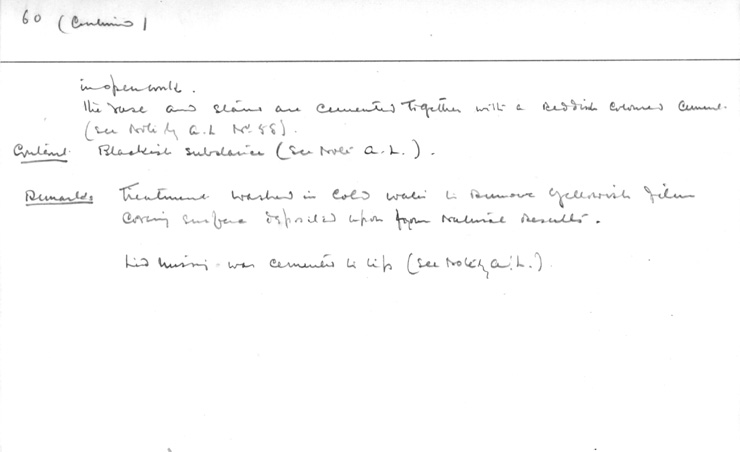 60 (Continued)
in open work.
The vase and stand are cemented together with a Reddish Coloured Cement.
(See Note by A.L. No. 58).
Content. Blackish substance (See Note A.L.).
Remarks. Treatment. Washed in Cold water to Remove yellowish film
Covering surface deposited upon from Natural Results.
Lid missing - was cemented to lip (See Note by A.L.)